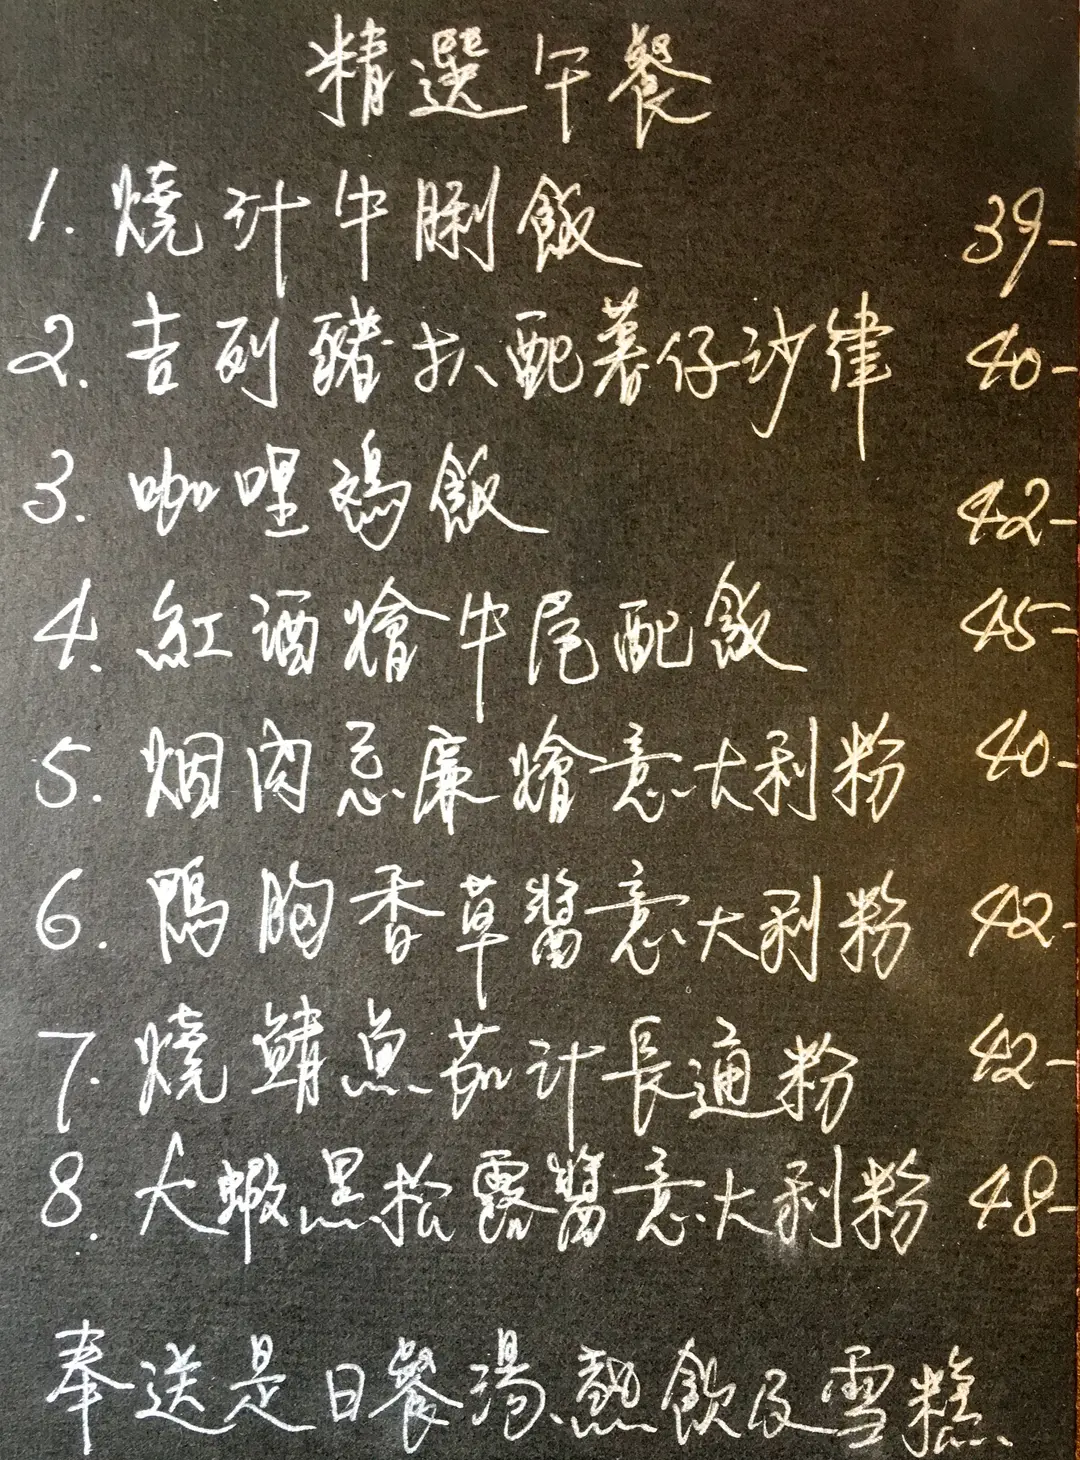 精選午餐
1. 燒汁牛脷飯 39-
2. 吉列豬扒配薯仔沙律 40-
3. 咖哩鷄飯 42-
4. 紅酒燴牛尾配飯 45-
5. 烟肉忌廉燴意大利粉 40-
6. 鴨胸香草醬意大利粉 42-
7. 燒鯖魚茄汁長通粉 42-
8. 大蝦黑松露醬意大利粉 48-
奉送是日餐湯、熱飲及雪糕